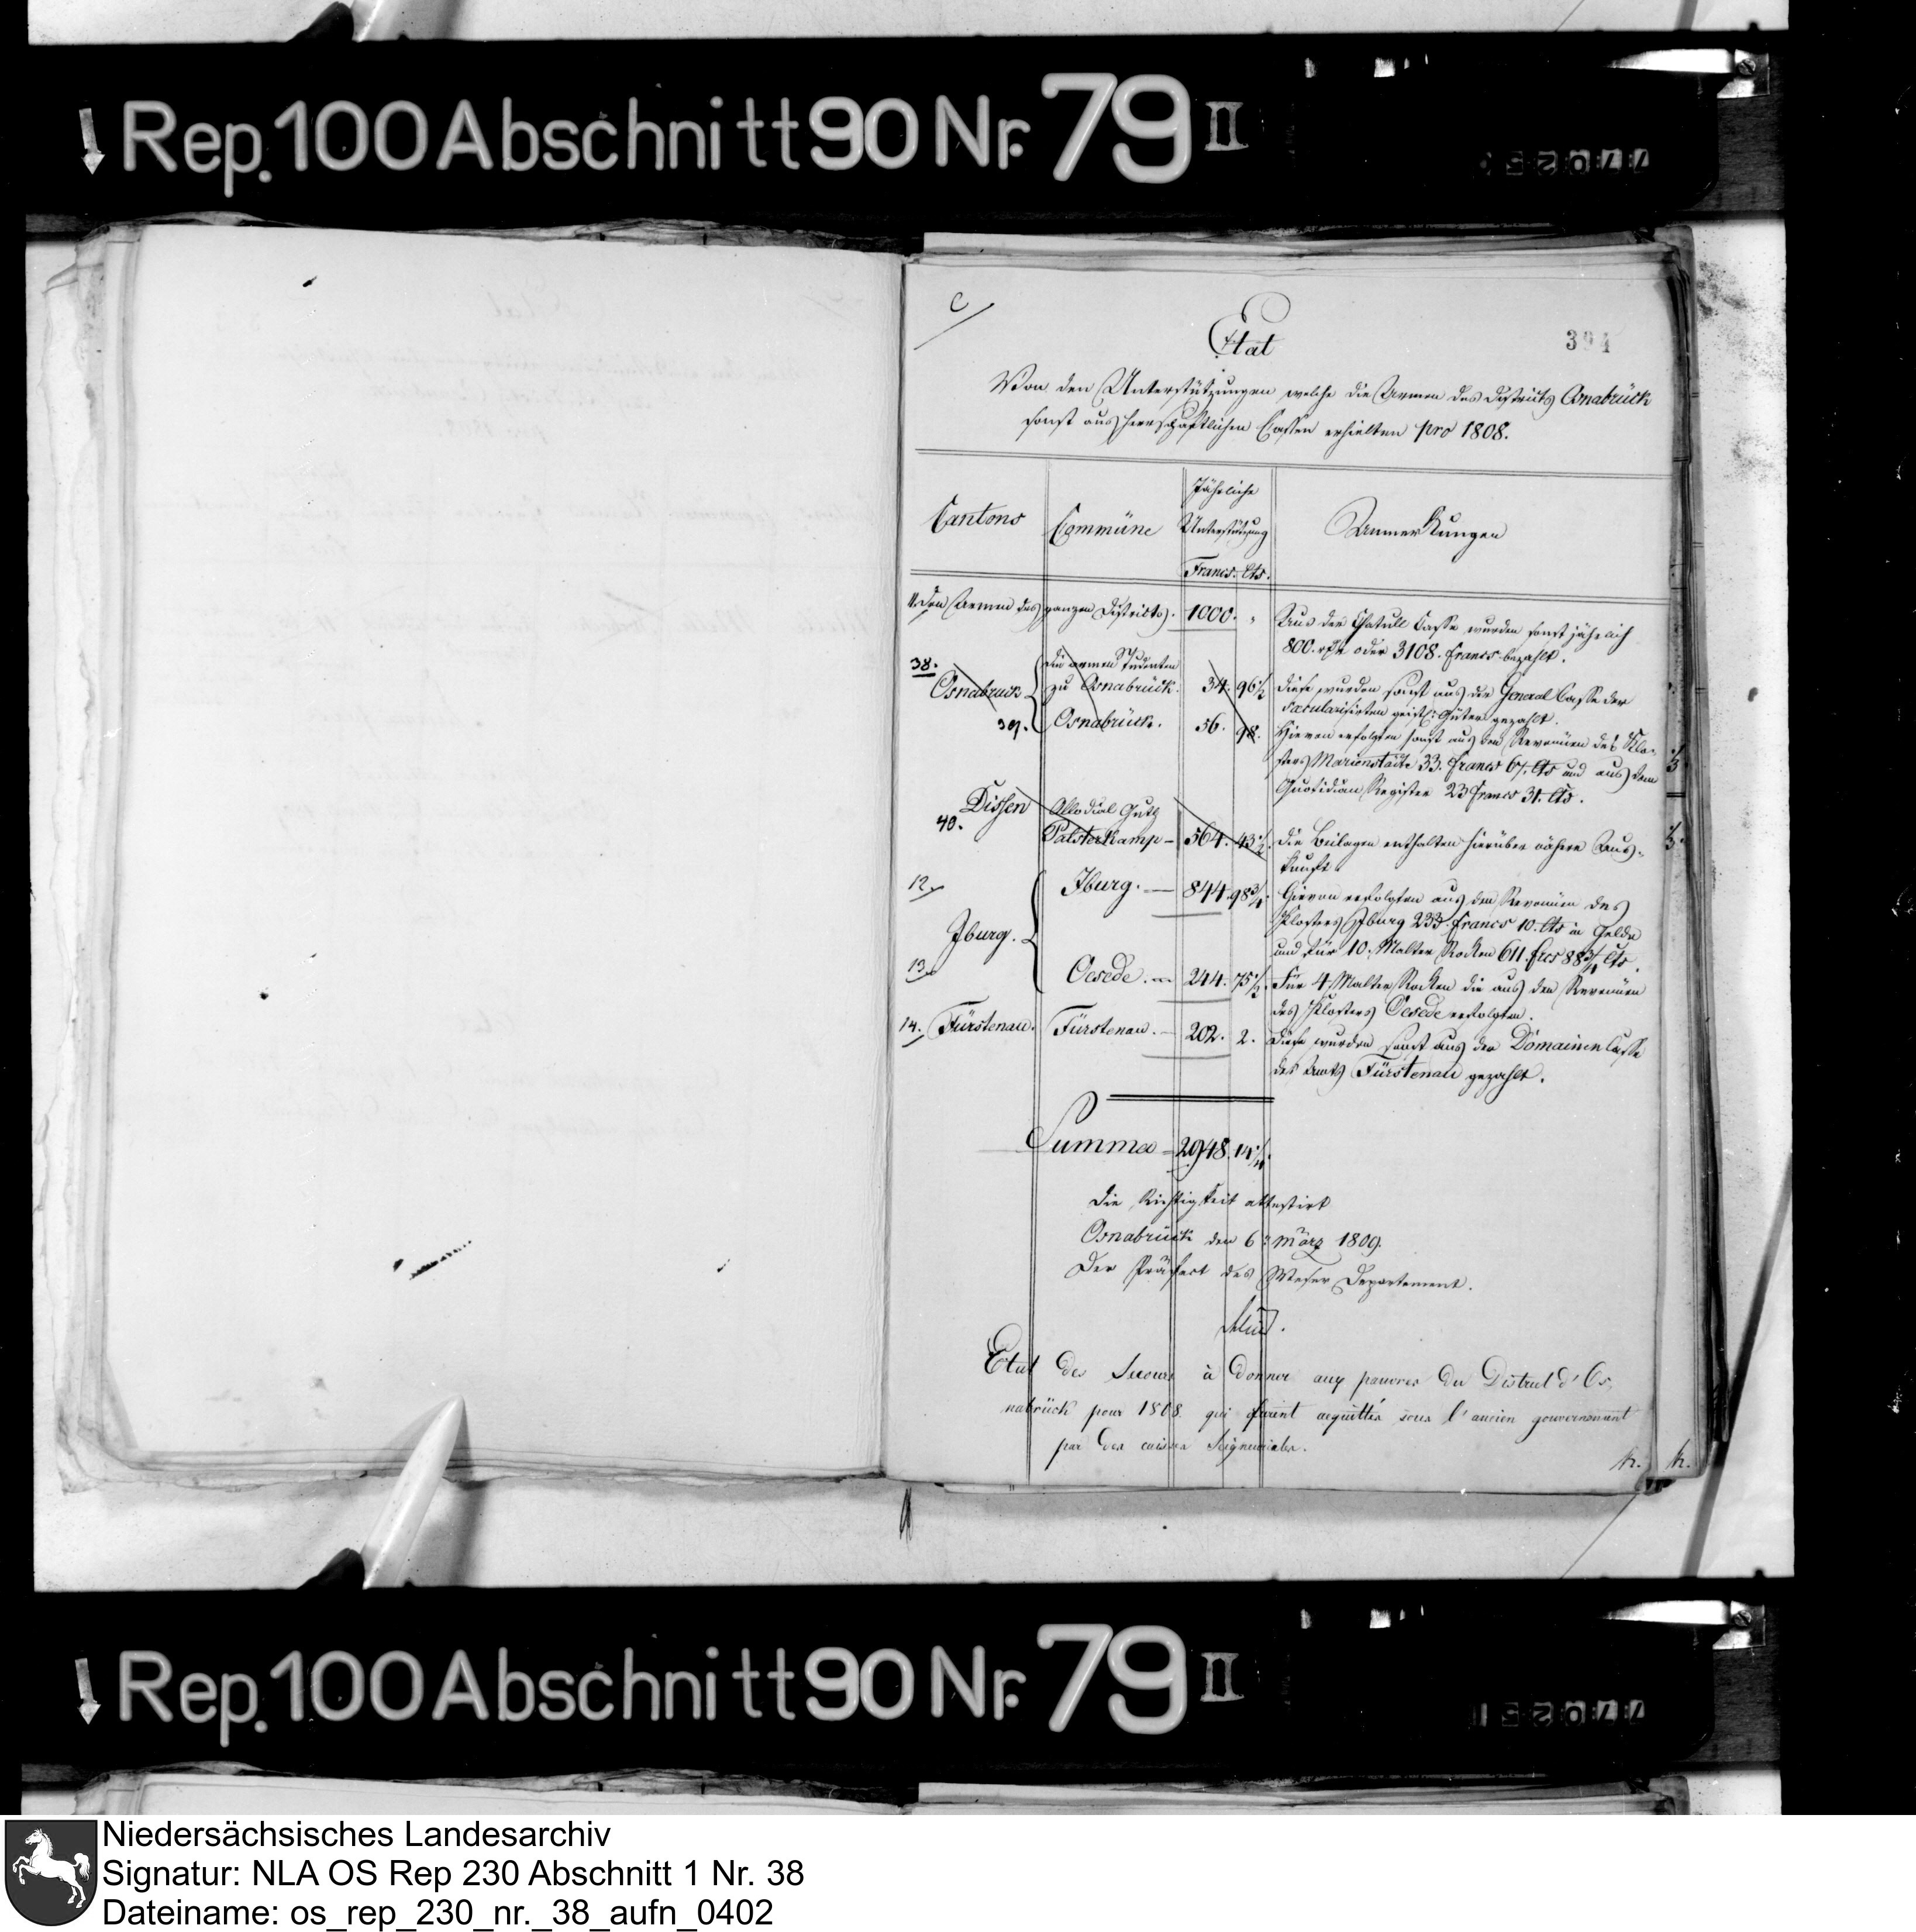 Rep. 100 Abschnitt 90 Nr. 79 II
77025
C
394
Etat
Von den Unterstützungen welche die Armen des Districts Osnabrück
sonst aus herrschaftlichen Cassen erhielten pro 1808.
Cantons
Commüne
Jährliche
Unterstützung
Francs. Cts.
Anmerkungen
11. den Armen des ganzen Districts. 1000. "
Aus der Chatull Casse wurden sonst jährlich
800. rthr oder 3108. francs bezahlt.
38.
Osnabrück
den armen Studenten
zu Osnabrück. 34. 96 1/2
diese wurden sonst aus der General Casse der
saecularisirten geistl. Güter gezahlt.
39. Osnabrück. 56. 98.
Hievon erfolgten sonst aus den Revenüen des Klo-
sters Marienstäte 33. francs 67. Cts und aus dem
Quotidian Register 23 francs 31. Cts.
Dissen
40.
Allodial Guth
Palsterkamp — 564. 43 1/2.
die Beilagen enthalten hierüber nähere Aus-
kunft.
12.
Iburg. — 844. 98 3/4.
Hievon erfolgten aus den Revenüen des
Klosters Iburg 233. francs 10. Cts in Gelde
und für 10. Malter Rocken 611. frcs 88 3/4 Cts.
Iburg.
13.
Oesede. — 244. 75 1/2.
Für 4 Malter Rocken die aus den Revenüen
des Klosters Oesede erfolgten.
14. Fürstenau. Fürstenau. — 202. 2.
diese wurden sonst aus der Domainen Casse
des Amts Fürstenau gezahlt.
Summa = 2948. 14 1/4.
die Richtigkeit attestirt
Osnabrück den 6. März 1809.
Der Präfect des Weser Departement.
Etat des Secours à donner aux pauvres du District d'Os
nabrück pour 1808. qui furent acquittés sous l'ancien gouvernement
par des caisses Seigneuriales.
Rep. 100 Abschnitt 90 Nr. 79 II
77025
Niedersächsisches Landesarchiv
Signatur: NLA OS Rep 230 Abschnitt 1 Nr. 38
Dateiname: os_rep_230_nr._38_aufn_0402